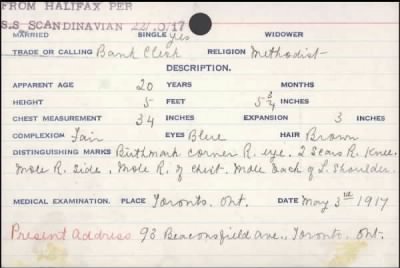 FROM HALIFAX PER
S.S SCANDINAVIAN 22/5/17
MARRIED SINGLE yes WIDOWER
TRADE OR CALLING Bank Clerk RELIGION Methodist
DESCRIPTION.
APPARENT AGE 20 YEARS MONTHS
HEIGHT 5 FEET 5 3/4 INCHES
CHEST MEASUREMENT 34 INCHES EXPANSION 3 INCHES
COMPLEXION Fair EYES Blue HAIR Brown
DISTINGUISHING MARKS Birthmark corner R. eye. 2 Scars R. Knee.
Mole R. Side. Mole R. of chest. Mole back of L. Shoulder.
MEDICAL EXAMINATION. PLACE Toronto. Ont. DATE May 3rd 1917
Present Address 93 Beaconsfield Ave., Toronto. Ont.